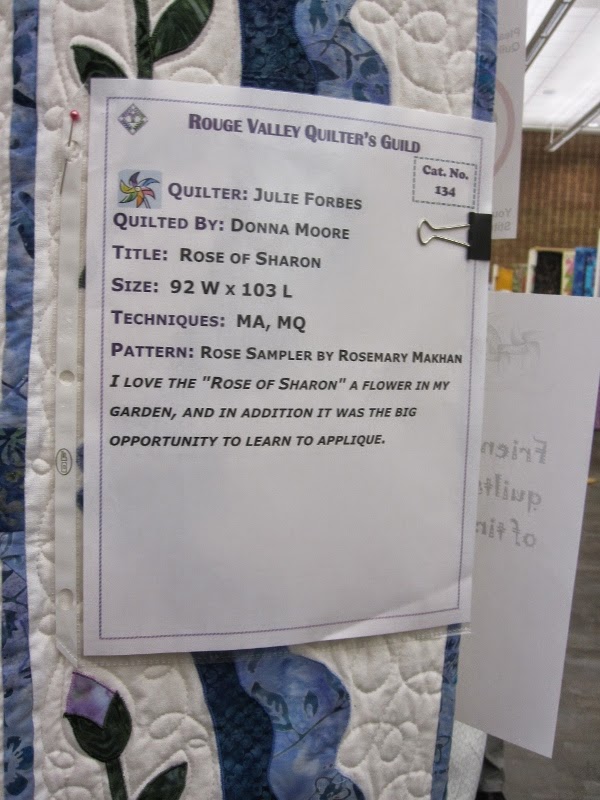 ROUGE VALLEY QUILTER'S GUILD
Cat. No.
134
QUILTER: JULIE FORBES
QUILTED BY: DONNA MOORE
TITLE: ROSE OF SHARON
SIZE: 92 W X 103 L
TECHNIQUES: MA, MQ
PATTERN: ROSE SAMPLER BY ROSEMARY MAKHAN
I LOVE THE "ROSE OF SHARON" A FLOWER IN MY
GARDEN, AND IN ADDITION IT WAS THE BIG
OPPORTUNITY TO LEARN TO APPLIQUE.